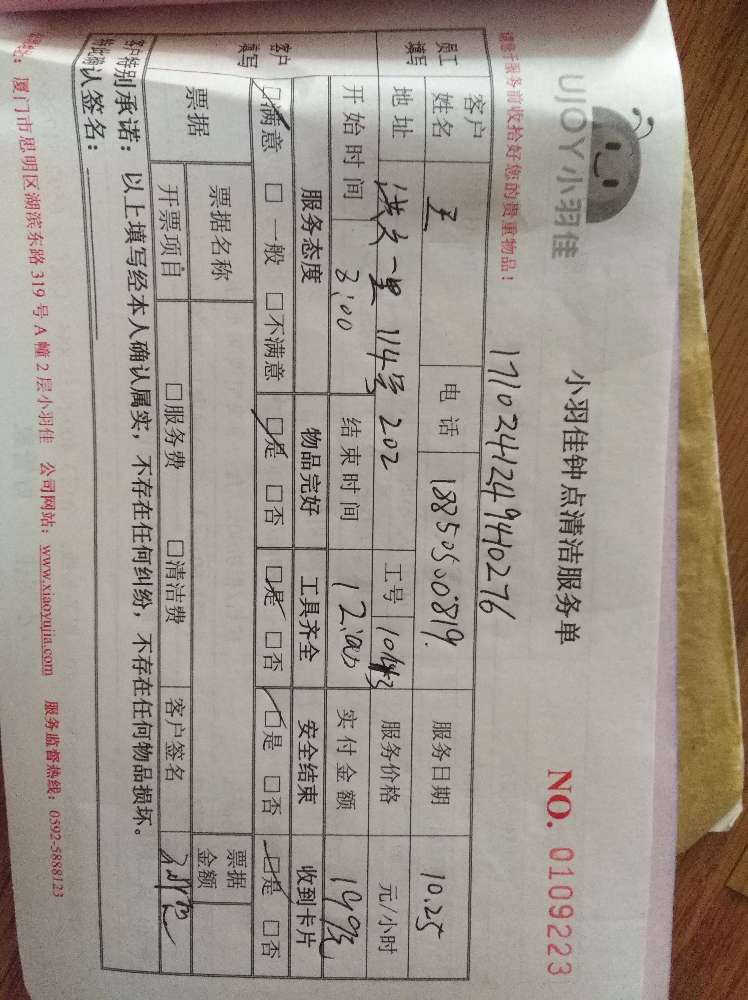 UJOY小羽佳
小羽佳钟点清洁服务单
NO. 0109223
请您于服务前收拾好您的贵重物品！
17102412494 0276
员工填写
客户姓名 王 电话 18850500819 服务日期 10.25
地址 一里 114号 202 工号 服务价格 元/小时
开始时间 8:00 结束时间 12:00 实付金额
客户填写
服务态度 物品完好 工具齐全 安全结束 收到卡片
☑满意 □一般 □不满意 ☑是 □否 ☑是 □否 ☑是 □否 ☑是 □否
票据 票据名称 票据金额
开票项目 □服务费 □清洁费 客户签名
客户特别承诺：以上填写经本人确认属实，不存在任何纠纷，不存在任何物品损坏。
特此确认签名：
厦门市思明区湖滨东路 319 号 A 幢 2 层小羽佳 公司网站：www.xiaoyujia.com 服务监督热线：0592-5888123